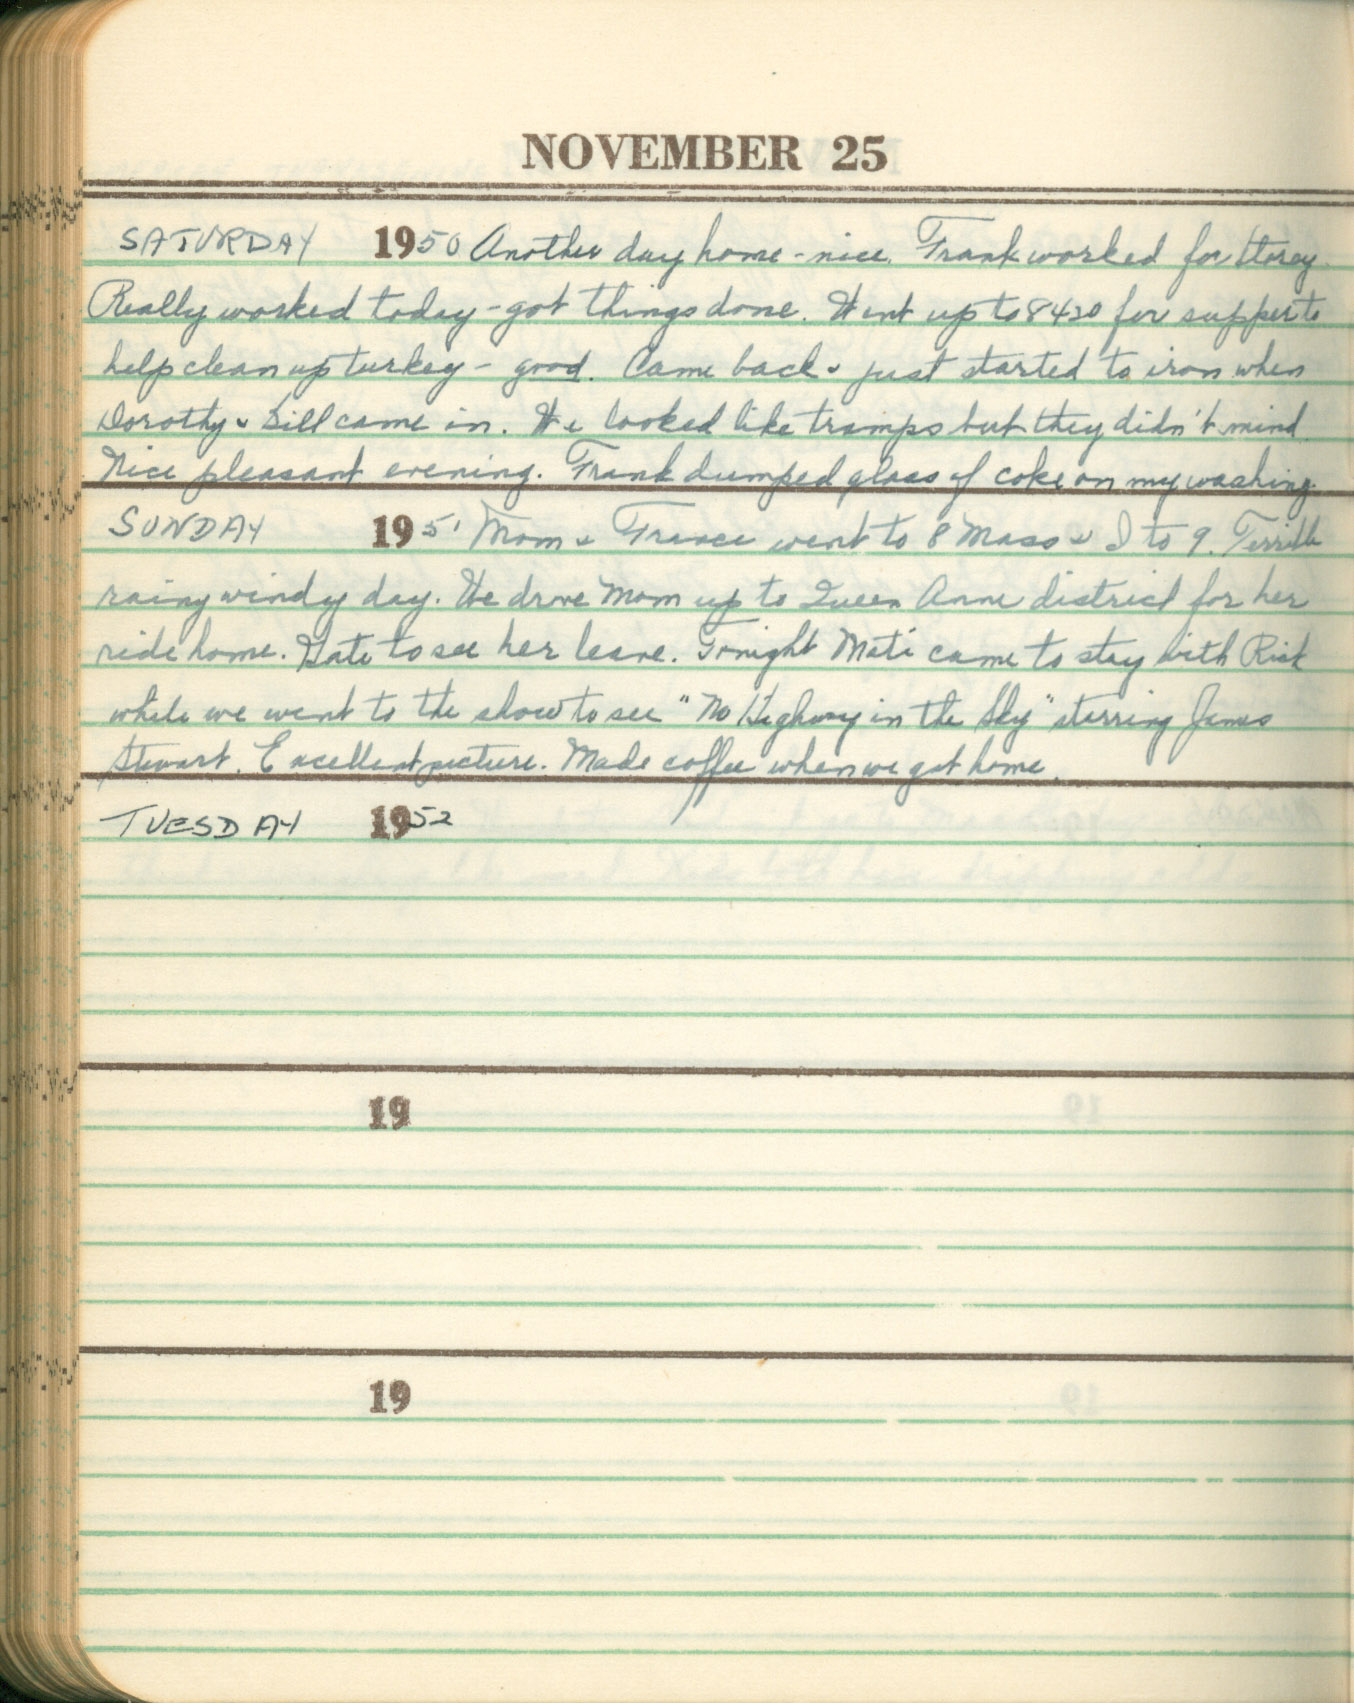 NOVEMBER 25
SATURDAY 1950 Another day home - nice. Frank worked for Storey.
Really worked today - got things done. Went up to 8420 for supper to
help clean up turkey - good. Came back & just started to iron when
Dorothy & Bill came in. We looked like tramps but they didn't mind.
Nice pleasant evening. Frank dumped glass of coke on my washing.
SUNDAY 1951 Mom & France went to 8 Mass & I to 9. Terrible
rainy windy day. We drove Mom up to Queen Anne district for her
ride home. Hate to see her leave. Tonight Mati came to stay with Rick
while we went to the show to see "No Highway in the Sky" starring James
Stewart. Excellent picture. Made coffee when we got home.
TUESDAY 1952
19
19